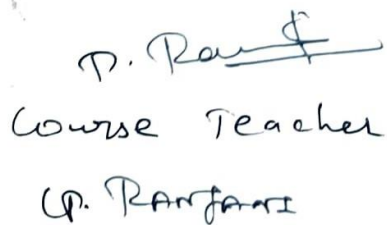 P. Ran
Course Teacher
(P. RANJANI